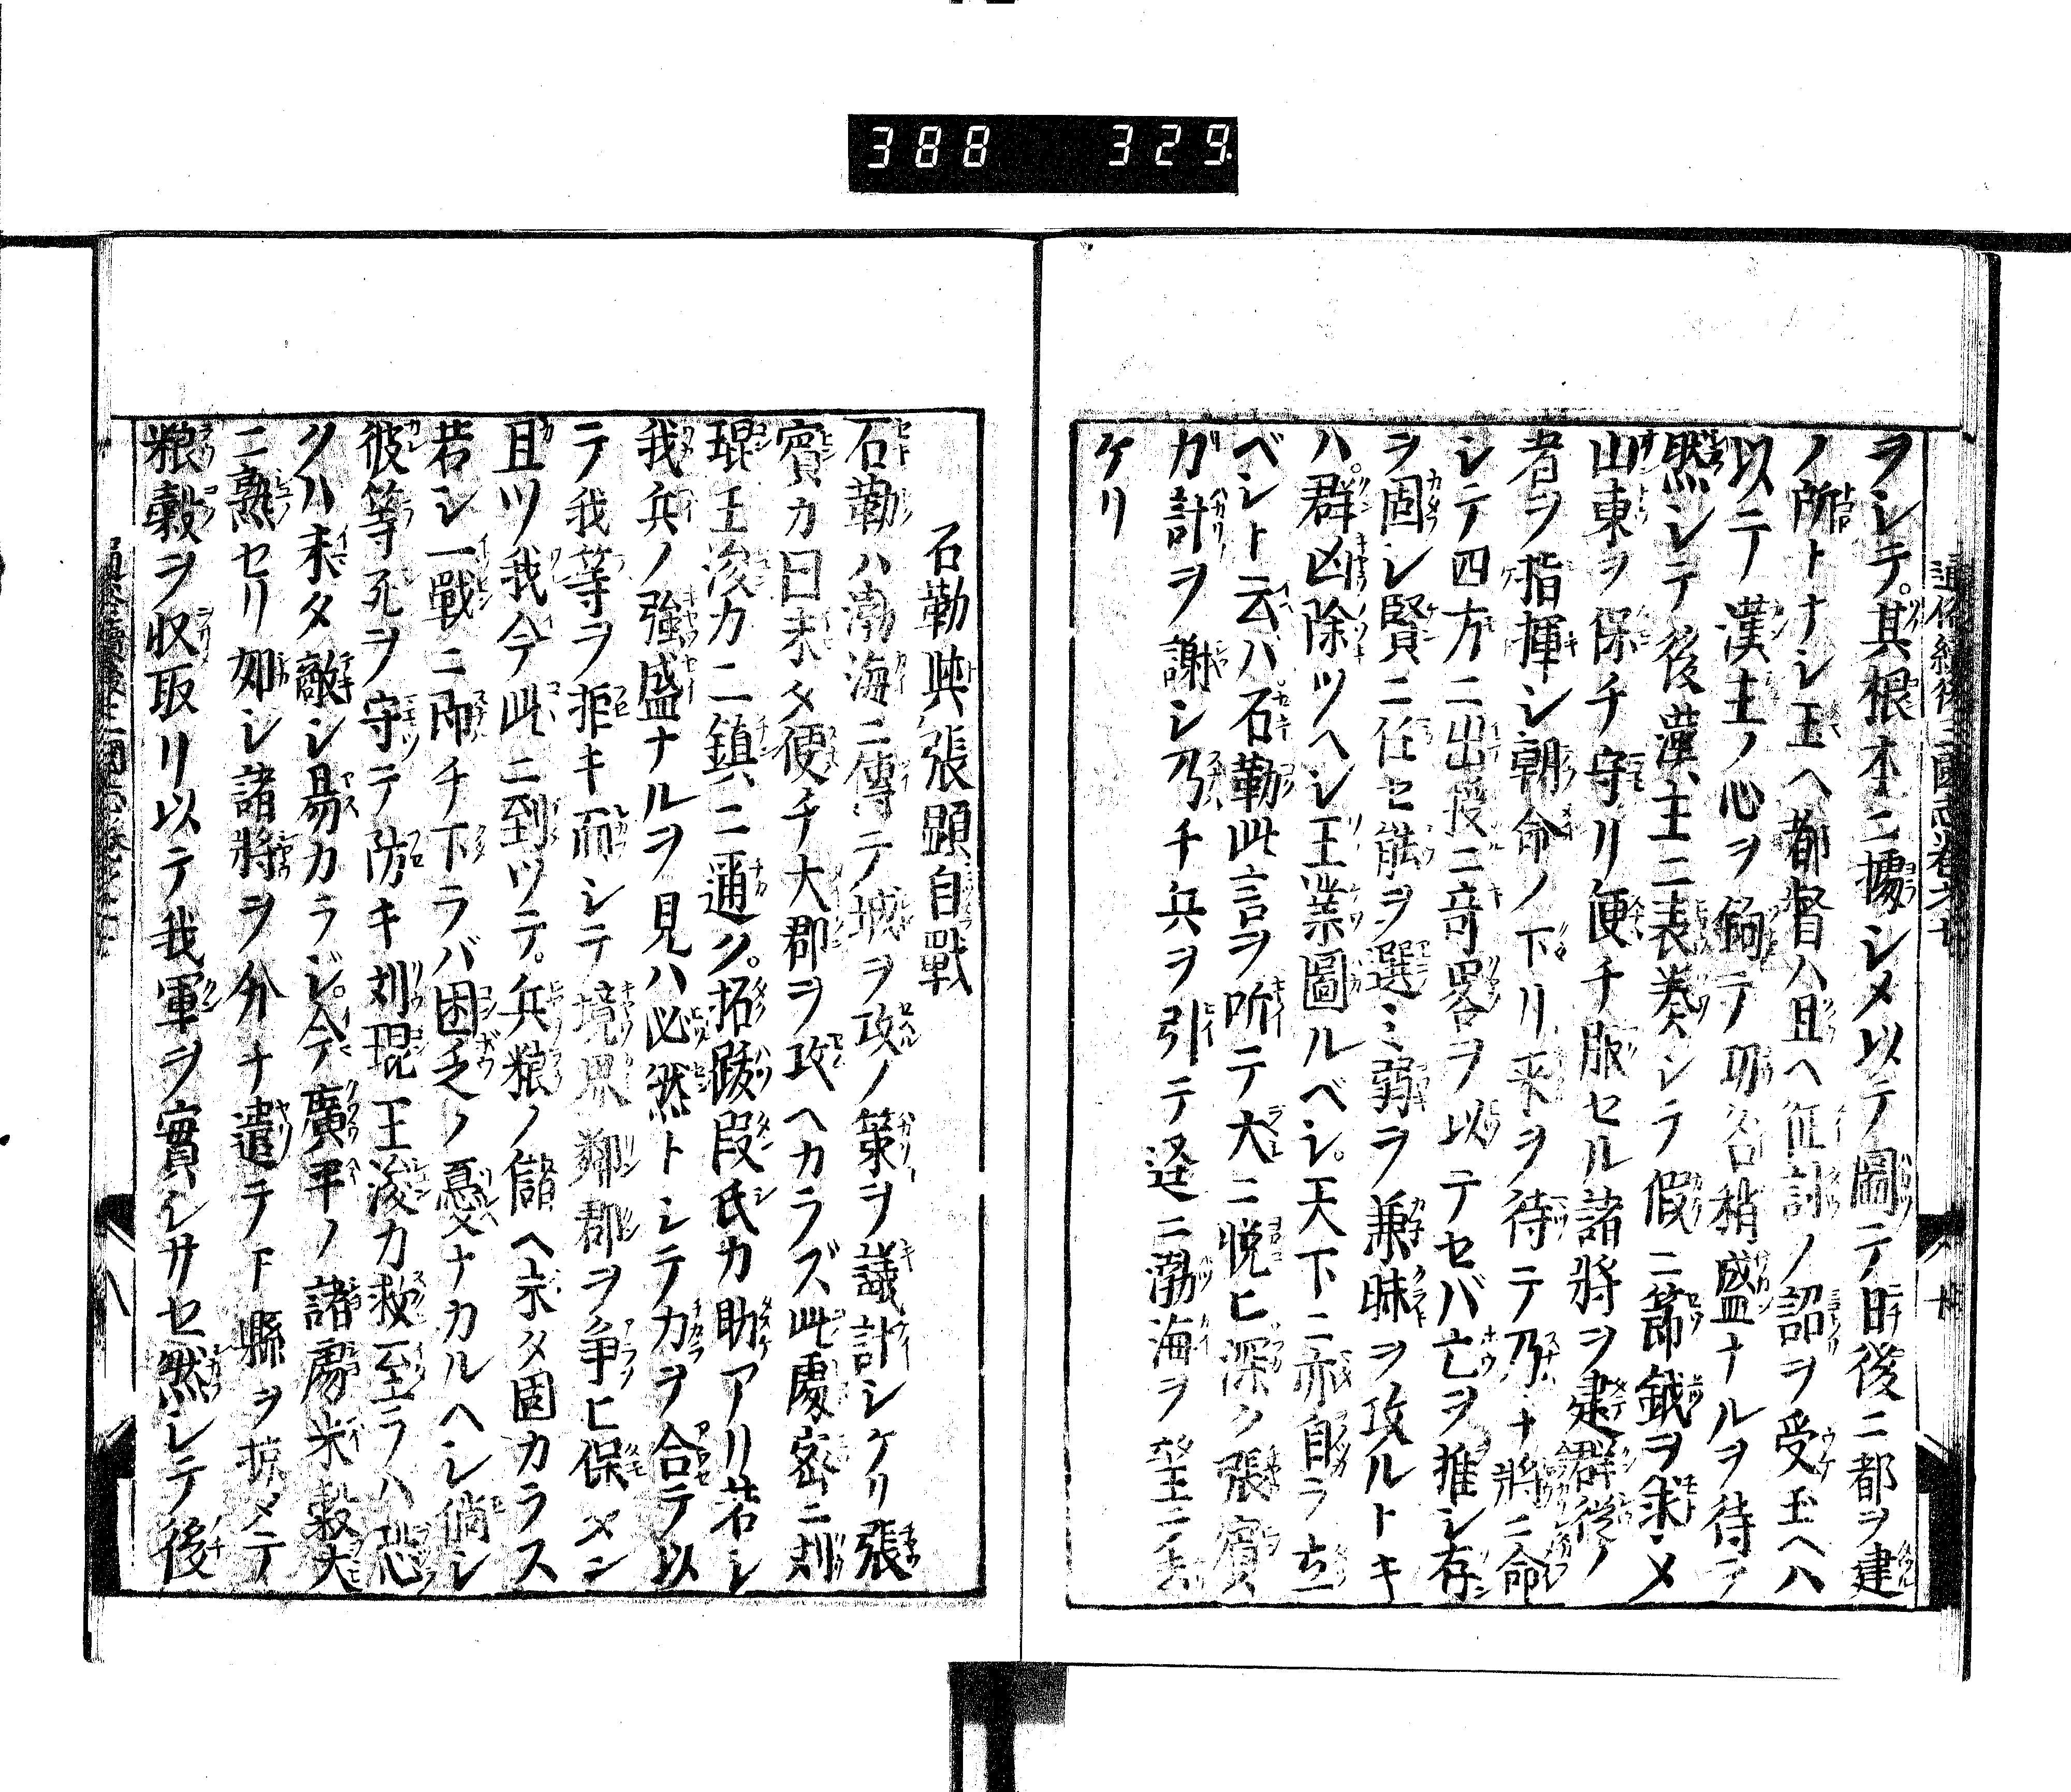 388 329
ヲシテ。其根本ニ據シメ以テ圖テ日後ニ都ヲ建
ノ所トナシ玉ヘ都督ハ且ヘ征討ノ詔ヲ受玉ヘハ
以テ漢主ノ心ヲ鉤テ功名稍盛ナルヲ待テ
然シテ後漢主ニ表奏シテ假ニ節鉞ヲ求メ
山東ヲ保チ守リ便チ服セル諸將ヲ建群從ノ
者ヲ指揮シ朝命ノ下リ来ヲ待テ乃チ將ニ命
シテ四方ニ出授ニ奇畧ヲ以テセバ亡ヲ推シ存
ヲ固シ賢ニ任セ能ヲ選ミ弱ヲ兼昧ヲ攻ルトキ
ハ。群凶除ツヘシ王業圖ルベシ。天下ニ亦自ラ立
ベシト云バ石勒此言ヲ聞テ大ニ悦ヒ深ク張賓
ガ計ヲ謝シ乃チ兵ヲ引テ逕ニ渤海ヲ望ニ去
ケリ
石勒與張顕自戰
石勒ハ渤海ニ傳テ城ヲ攻ノ策ヲ議計シケリ張
賓カ曰未タ便チ大郡ヲ攻ヘカラズ此處密ニ刘
琨王浚カ二鎮ニ邇ク。拓跋段氏カ助アリ若シ
我兵ノ強盛ナルヲ見ハ必然トシテ力ヲ合テ以
テ我等ヲ拒キ而シテ境界鄰郡ヲ争ヒ保メン
且ツ我今此ニ到ツテ。兵粮ノ儲ヘ未タ固カラス
若シ一戰ニ即チ下ラバ困乏ノ憂ナカルヘシ倘シ
彼等死ヲ守テ防キ刘琨王浚カ救至ラハ恐
クハ未タ敵シ易カラジ。今廣平ノ諸處米穀大
ニ熟セリ如シ諸將ヲ分ナ遣テ下縣ヲ掠メテ
粮穀ヲ収取リ以テ我軍ヲ實シサセ然シテ後